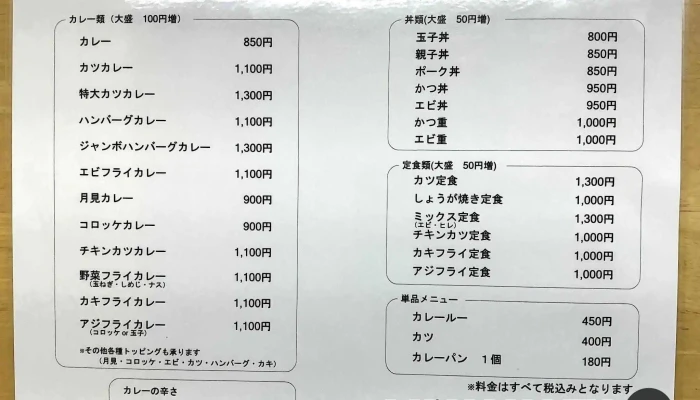 カレー類（大盛　100円増）
カレー　850円
カツカレー　1,100円
特大カツカレー　1,300円
ハンバーグカレー　1,100円
ジャンボハンバーグカレー　1,300円
エビフライカレー　1,100円
月見カレー　900円
コロッケカレー　900円
チキンカツカレー　1,100円
野菜フライカレー　1,100円
（玉ねぎ・しめじ・ナス）
カキフライカレー　1,100円
アジフライカレー　1,100円
（コロッケ or 玉子）
※その他各種トッピングも承ります
（月見・コロッケ・エビ・カツ・ハンバーグ・カキ）
カレーの辛さ
丼類(大盛　50円増)
玉子丼　800円
親子丼　850円
ポーク丼　850円
かつ丼　950円
エビ丼　950円
かつ重　1,000円
エビ重　1,000円
定食類(大盛　50円増)
カツ定食　1,300円
しょうが焼き定食　1,000円
ミックス定食　1,300円
（エビ・ヒレ）
チキンカツ定食　1,000円
カキフライ定食　1,000円
アジフライ定食　1,000円
単品メニュー
カレールー　450円
カツ　400円
カレーパン　1個　180円
※料金はすべて税込みとなります